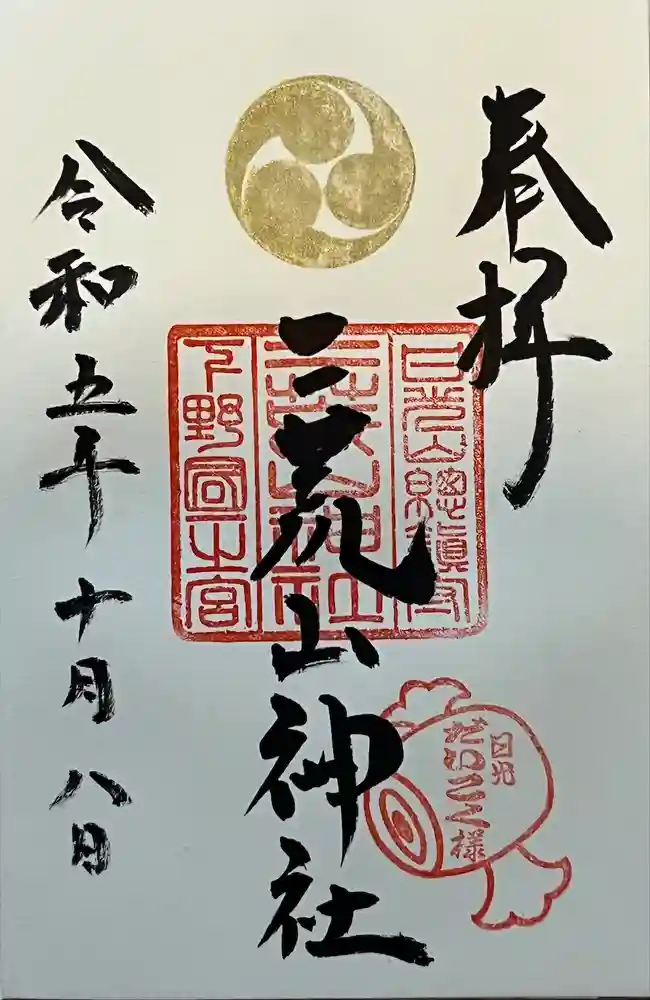 奉拝
日光山總鎮守
二荒山神社
下野國一之宮
二荒山神社
日光
だいこく様
令和五年十月八日